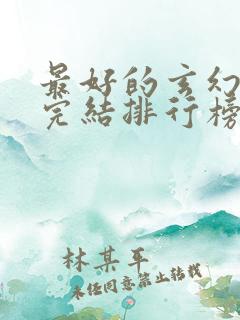 最好的玄幻
完结排行榜
林某平
未经同意禁止转载